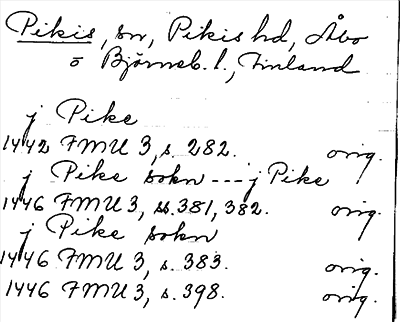 Pikis, sn, Pikis hd, Åbo
o Björneb. l., Finland
j Pike
1442 FMU 3, s. 282. orig.
j Pike sokn --- j Pike
1446 FMU 3, ss. 381, 382. orig.
j Pike sokn
1446 FMU 3, s. 383. orig.
1446 FMU 3, s. 398. orig.